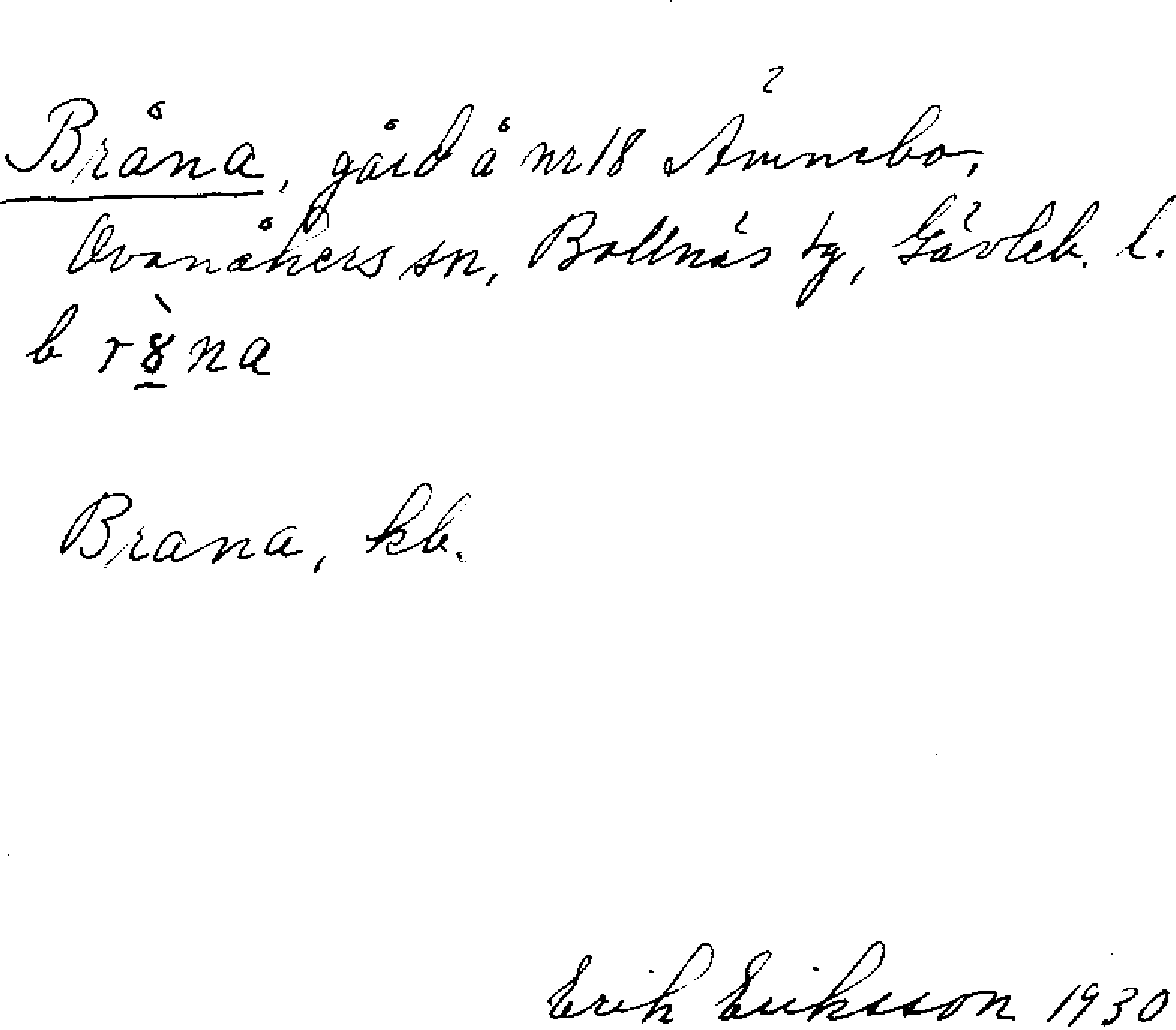 Bråna, gård å nr 18 Ämnebo,
Ovanåkers sn, Bollnäs tg, Gävleb. l.
b r8̠̀na
Brana, kb.
Erik Eriksson 1930